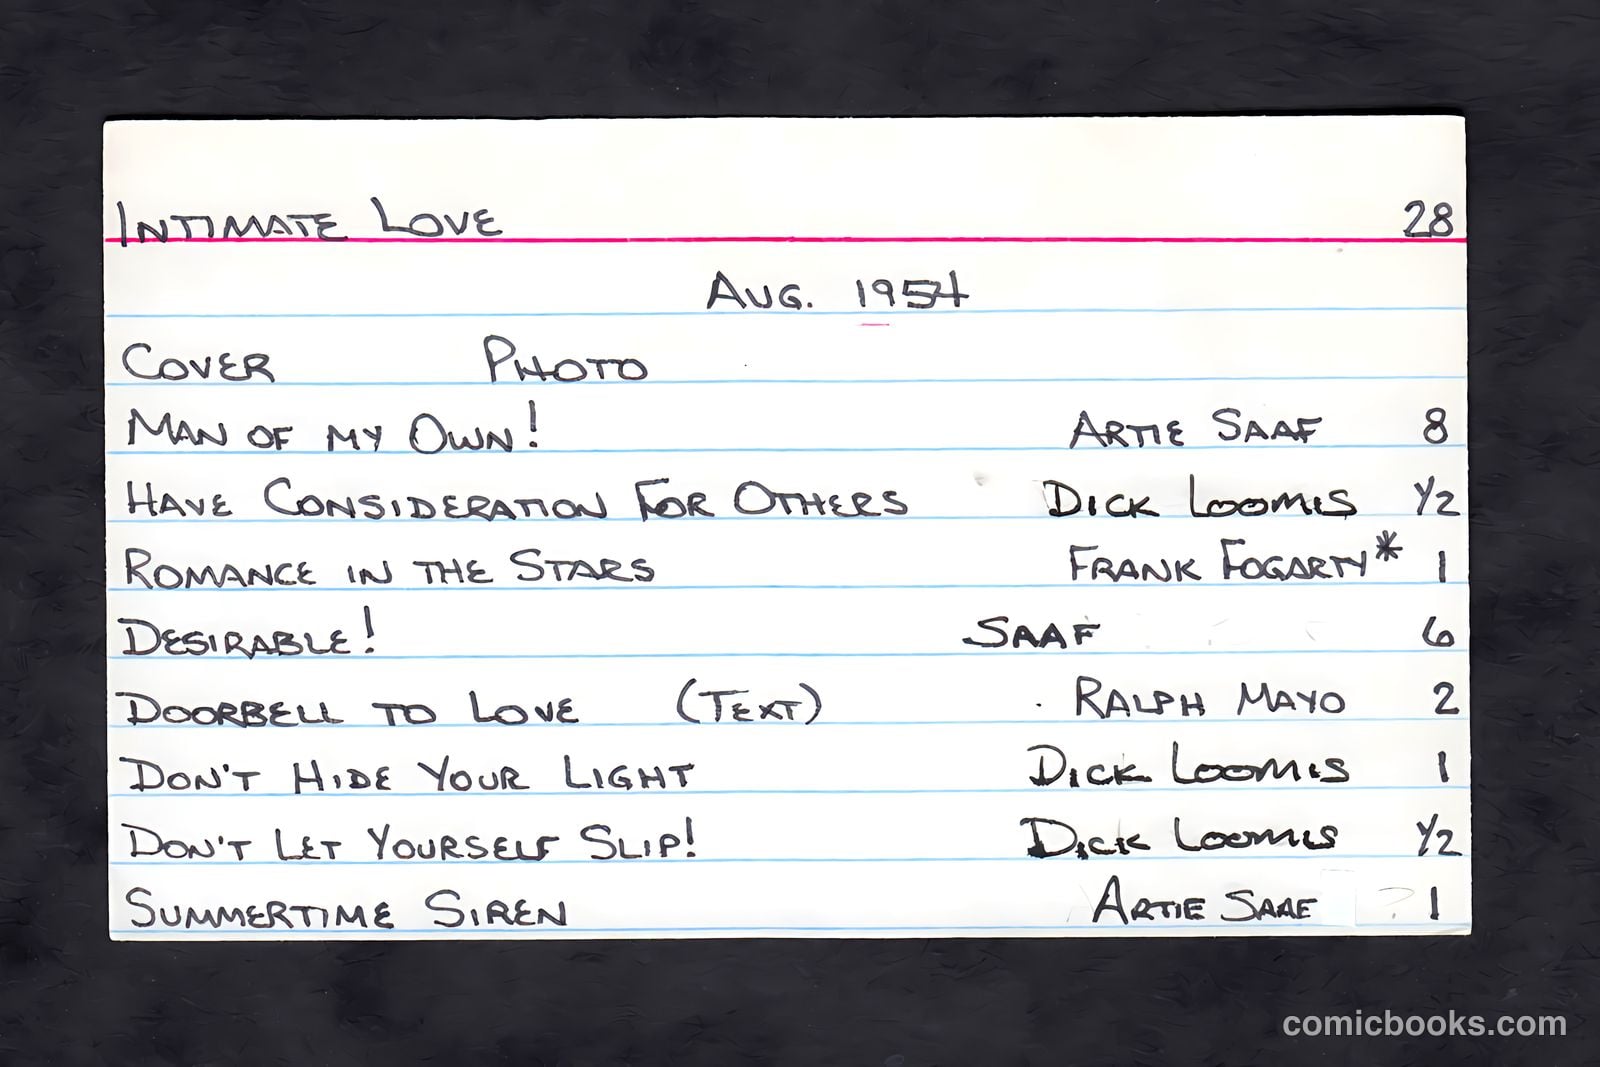 INTIMATE LOVE 28
AUG. 1954
COVER PHOTO
MAN OF MY OWN! ARTIE SAAF 8
HAVE CONSIDERATION FOR OTHERS DICK LOOMIS 1/2
ROMANCE IN THE STARS FRANK FOGARTY* 1
DESIRABLE! SAAF 6
DOORBELL TO LOVE (TEXT) RALPH MAYO 2
DON'T HIDE YOUR LIGHT DICK LOOMIS 1
DON'T LET YOURSELF SLIP! DICK LOOMIS 1/2
SUMMERTIME SIREN ARTIE SAAF ? 1
comicbooks.com